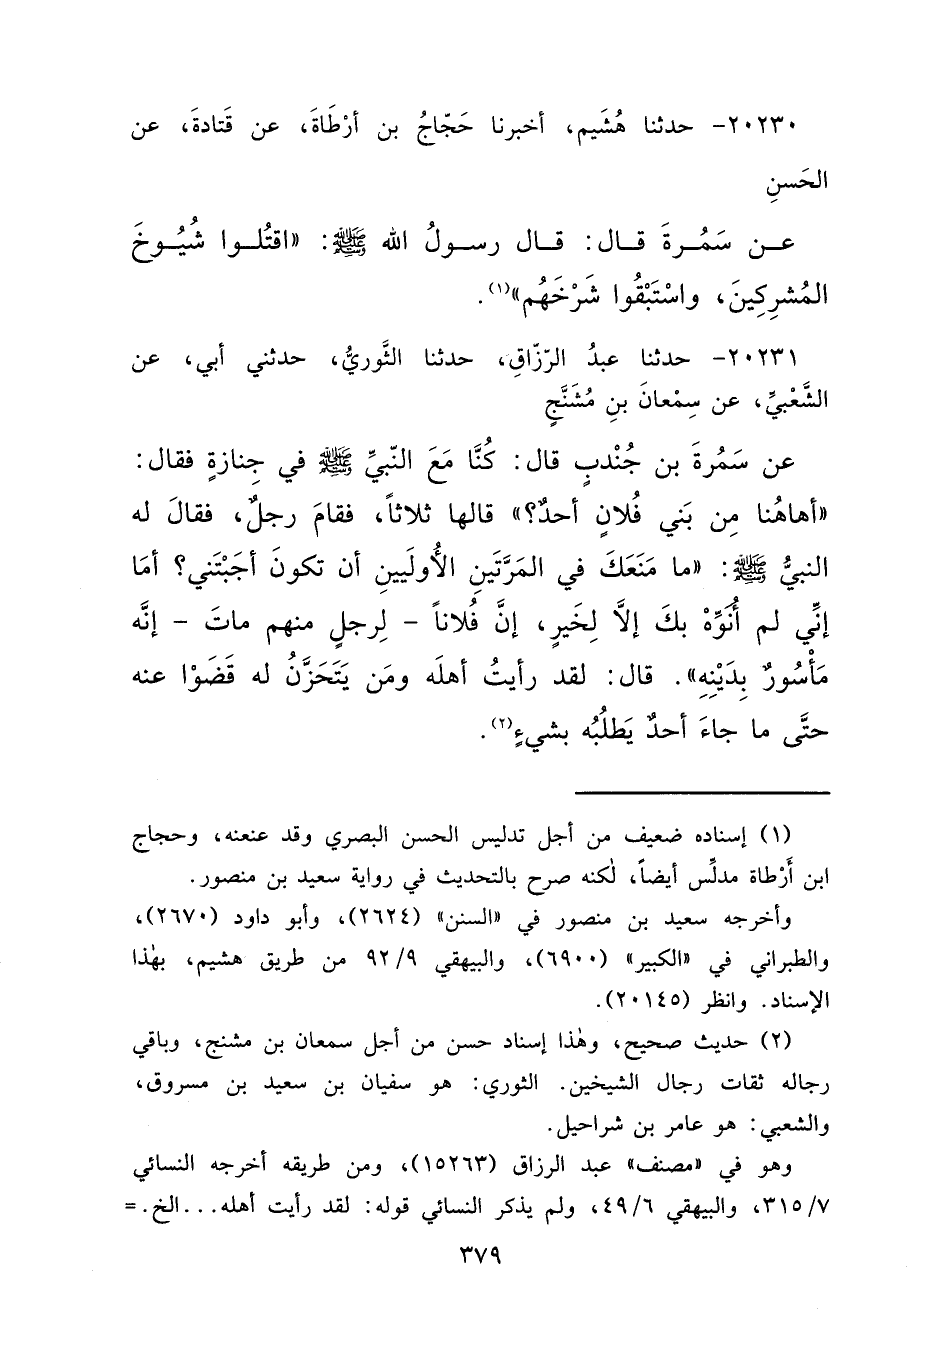 ٢٠٢٣٠- حدثنا هُشَيم، أخبرنا حَجّاجُ بن أرْطَاةَ، عن قَتادةَ، عن
الحَسنِ
عـن سَمُـرةَ قـال: قـال رسـولُ الله ﷺ: «اقتُلـوا شُيُـوخَ
المُشرِكِينَ، واسْتَبْقُوا شَرْخَهُم»(١).
٢٠٢٣١- حدثنا عبدُ الرّزّاقِ، حدثنا الثَّوريُّ، حدثني أبي، عن
الشَّعْبيِّ، عن سِمْعانَ بنِ مُشَنَّجٍ
عن سَمُرةَ بن جُنْدبٍ قال: كُنَّا مَعَ النّبيِّ ﷺ في جِنازةٍ فقال:
«أهاهُنا مِن بَني فُلانٍ أحدٌ؟» قالها ثلاثاً، فقامَ رجلٌ، فقالَ له
النبيُّ ﷺ: «ما مَنَعَكَ في المَرَّتَينِ الأُولَيينِ أن تكونَ أجَبْتَني؟ أمَا
إنِّي لم أُنَوِّهْ بكَ إلاَّ لِخَيرٍ، إنَّ فُلاناً - لِرجلٍ منهم ماتَ - إنَّه
مَأْسُورٌ بِدَيْنِهِ». قال: لقد رأيتُ أهلَه ومَن يَتَحَزَّنُ له قَضَوْا عنه
حتَّى ما جاءَ أحدٌ يَطلُبُه بشيءٍ(٢).
(١) إسناده ضعيف من أجل تدليس الحسن البصري وقد عنعنه، وحجاج
ابن أَرْطاة مدلِّس أيضاً، لٰكنه صرح بالتحديث في رواية سعيد بن منصور.
وأخرجه سعيد بن منصور في «السنن» (٢٦٢٤)، وأبو داود (٢٦٧٠)،
والطبراني في «الكبير» (٦٩٠٠)، والبيهقي ٩٢/٩ من طريق هشيم، بهٰذا
الإسناد. وانظر (٢٠١٤٥).
(٢) حديث صحيح، وهٰذا إسناد حسن من أجل سمعان بن مشنج، وباقي
رجاله ثقات رجال الشيخين. الثوري: هو سفيان بن سعيد بن مسروق،
والشعبي: هو عامر بن شراحيل.
وهو في «مصنف» عبد الرزاق (١٥٢٦٣)، ومن طريقه أخرجه النسائي
٣١٥/٧، والبيهقي ٤٩/٦، ولم يذكر النسائي قوله: لقد رأيت أهله...الخ.=
٣٧٩